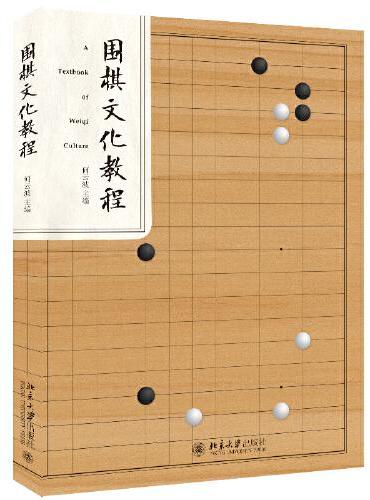 围棋文化教程
A
Textbook
of
Weiqi
Culture
何云波 主编
围棋文化教程
何云波 主编
北京大学出版社
PEKING UNIVERSITY PRESS
北京大学出版社
PEKING UNIVERSITY PRESS